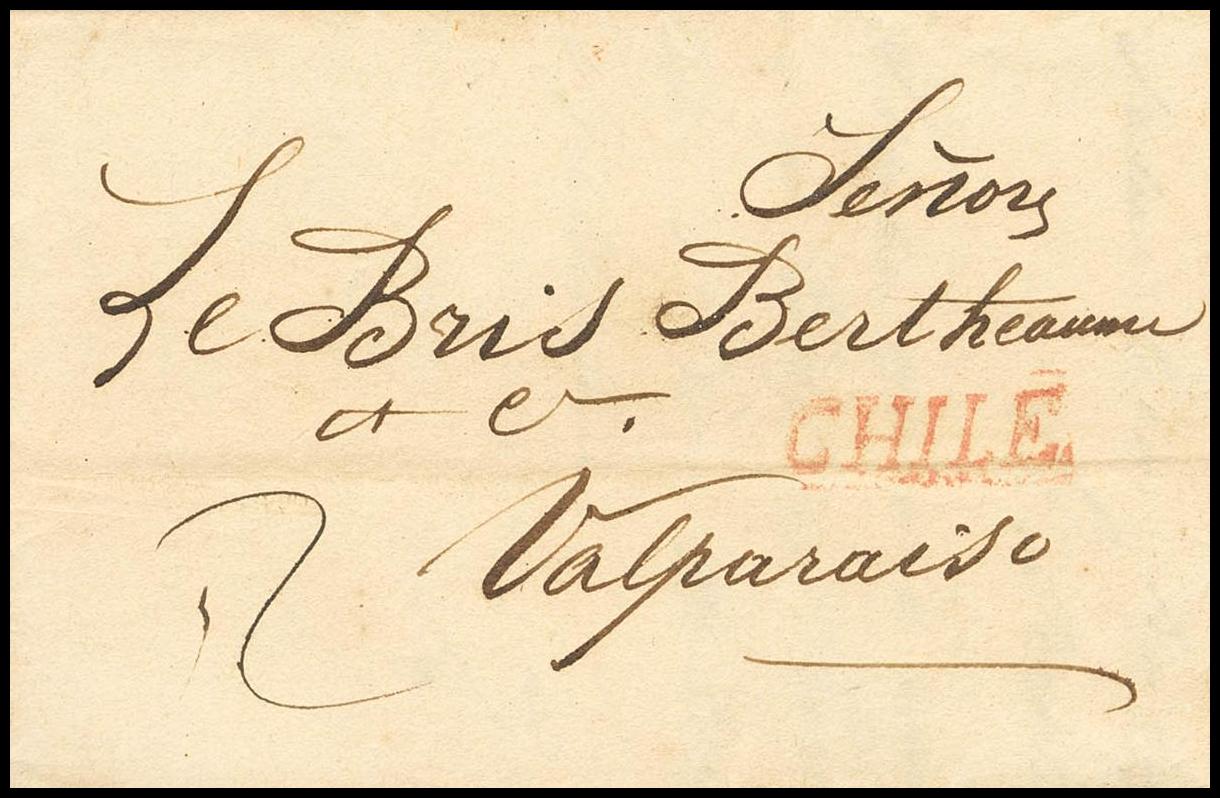 Señores
Le Bris Bertheaume
et Cº.
CHILE
Valparaiso
2